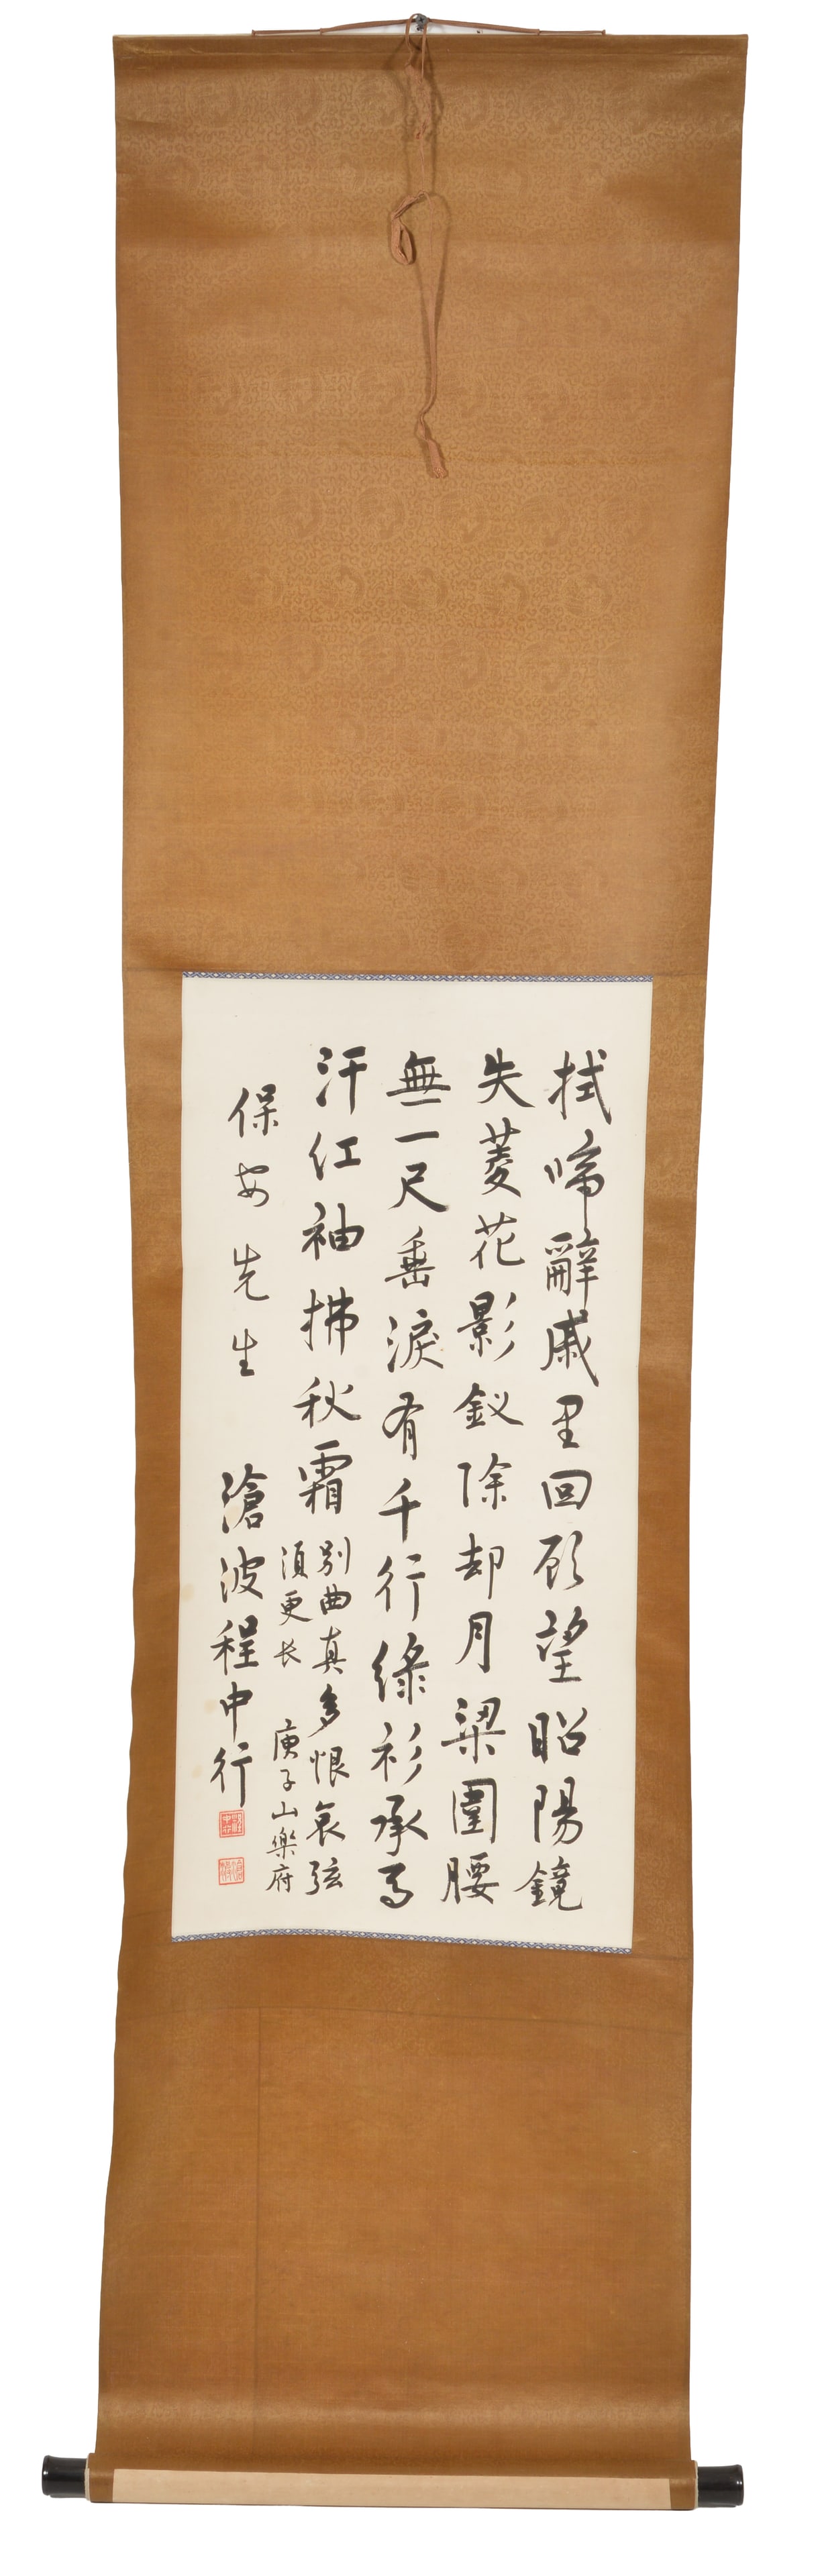 拭啼辭戚里回顧望昭陽鏡
失菱花影釵除却月梁圍腰
無一尺垂淚有千行綠衫承馬
汗紅袖拂秋霜
別曲真多恨哀弦
須更長 庾子山樂府
保安先生
滄波程中行